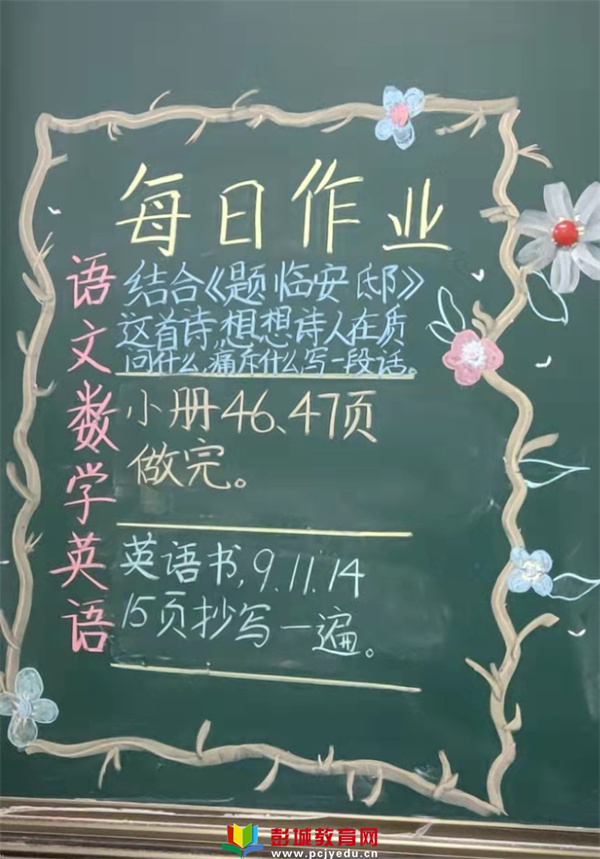 每日作业
语文
结合《题临安邸》
这首诗,想想诗人在质
问什么,痛斥什么,写一段话。
数学
小册46、47页
做完。
英语
英语书,9.11.14
15页抄写一遍。
彭城教育网
www.pcjyedu.cn